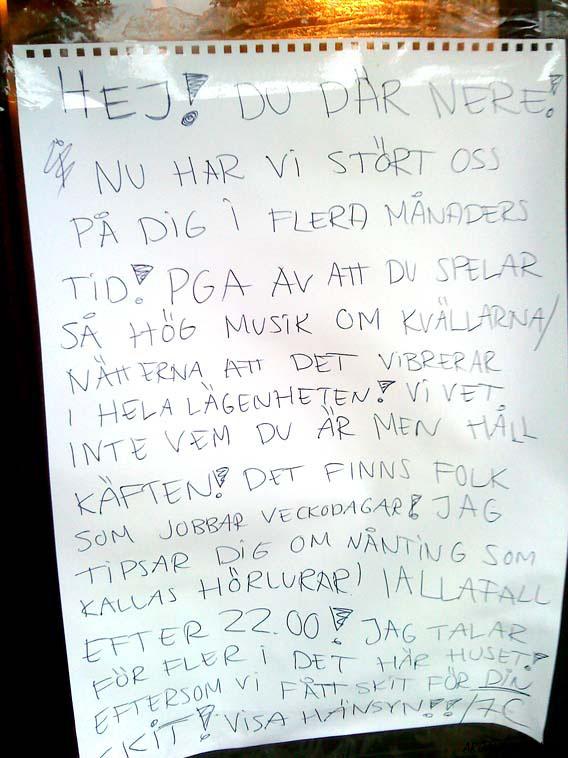 HEJ! DU DÄR NERE!
NU HAR VI STÖRT OSS
PÅ DIG I FLERA MÅNADERS
TID! PGA AV ATT DU SPELAR
SÅ HÖG MUSIK OM KVÄLLARNA/
NÄTTERNA ATT DET VIBRERAR
I HELA LÄGENHETEN! VI VET
INTE VEM DU ÄR MEN HÅLL
KÄFTEN! DET FINNS FOLK
SOM JOBBAR VECKODAGAR! JAG
TIPSAR DIG OM NÅNTING SOM
KALLAS HÖRLURAR! IALLAFALL
EFTER 22.00! JAG TALAR
FÖR FLER I DET HÄR HUSET!
EFTERSOM VI FÅTT SKIT FÖR DIN
SKIT! VISA HÄNSYN!! /7C